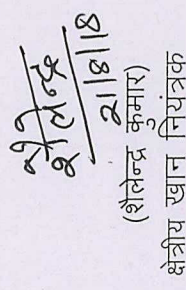 शैलेन्द्र
21/8/18
(शैलेन्द्र कुमार)
क्षेत्रीय खान नियंत्रक